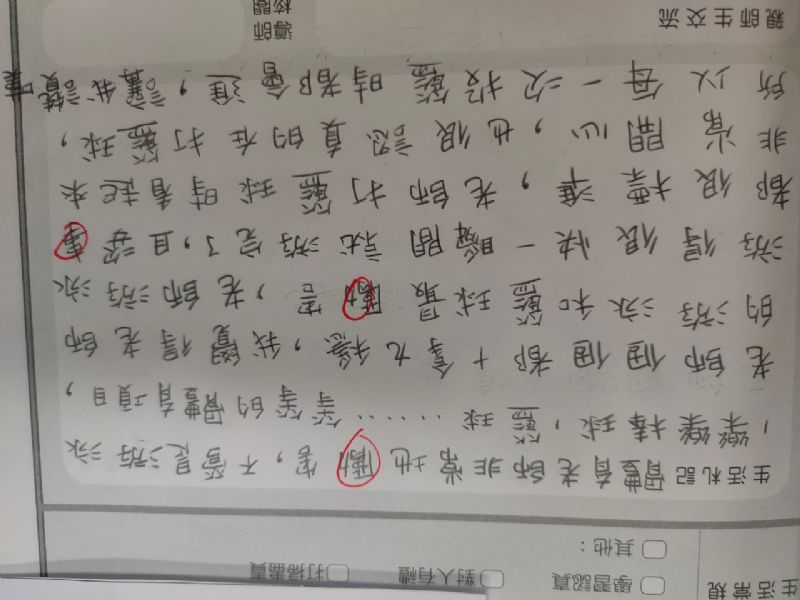 生活常規
學習認真 對人有禮 打掃盡責
其他：
生活札記
體育老師非常地勵害，不管是游泳
，樂樂棒球，籃球……等等的體育項目，
老師個個都十拿九穩，我覺得老師
的游泳和籃球最勵害，老師游泳
游得很快一瞬間就游完了，且姿事
都很標準，老師打籃球時看起來
非常開心，也很認真的在打籃球，
所以每一次投籃時都會進，讓我讚嘆
親師生交流
導師核閱